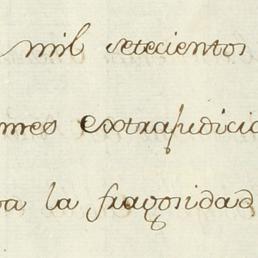 mil setecientos
mes extrajudicia
a la fragosidad